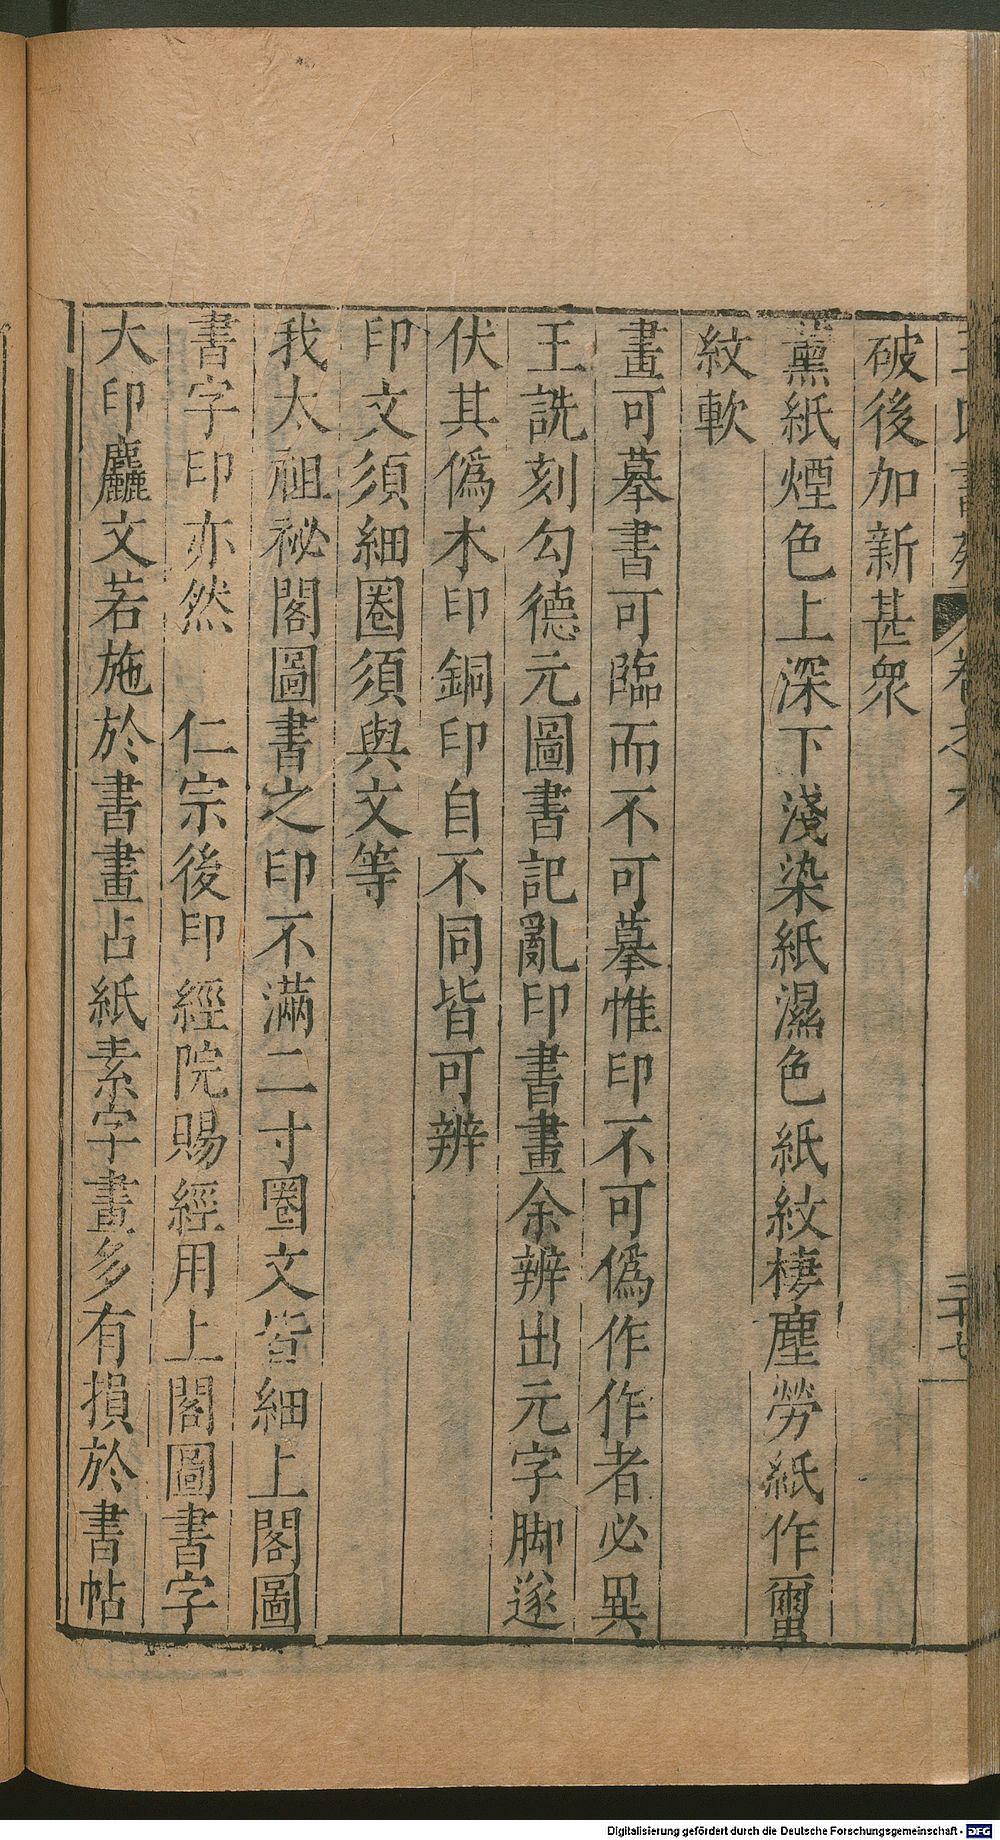 王氏書苑 卷之六 三十七
破後加新甚衆
薰紙煙色上深下淺染紙濕色紙紋棲塵勞紙作蠒
紋軟
畫可摹書可臨而不可摹惟印不可僞作作者必異
王詵刻勾德元圖書記亂印書畫余辨出元字脚遂
伏其僞木印銅印自不同皆可辨
印文須細圈須與文等
我太祖祕閣圖書之印不滿二寸圈文皆細上閣圖
書字印亦然 仁宗後印經院賜經用上閣圖書字
大印麤文若施於書畫占紙素字畫多有損於書帖
Digitalisierung gefördert durch die Deutsche Forschungsgemeinschaft - DFG